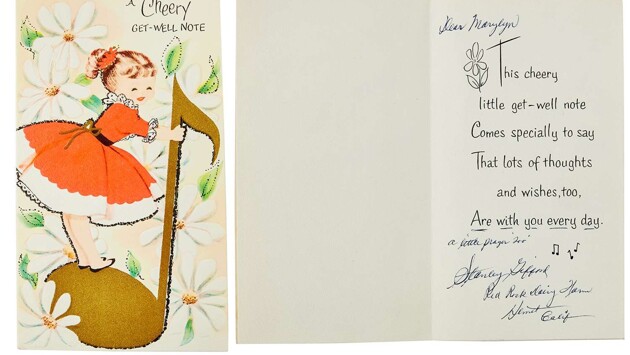 A Cheery
GET-WELL NOTE
Dear Marylyn
This cheery
little get-well note
Comes specially to say
That lots of thoughts
and wishes, too,
Are with you every day.
a little prayer too"
Stanley Gifford
Red Rock Dairy Farm
Hemet
Calif